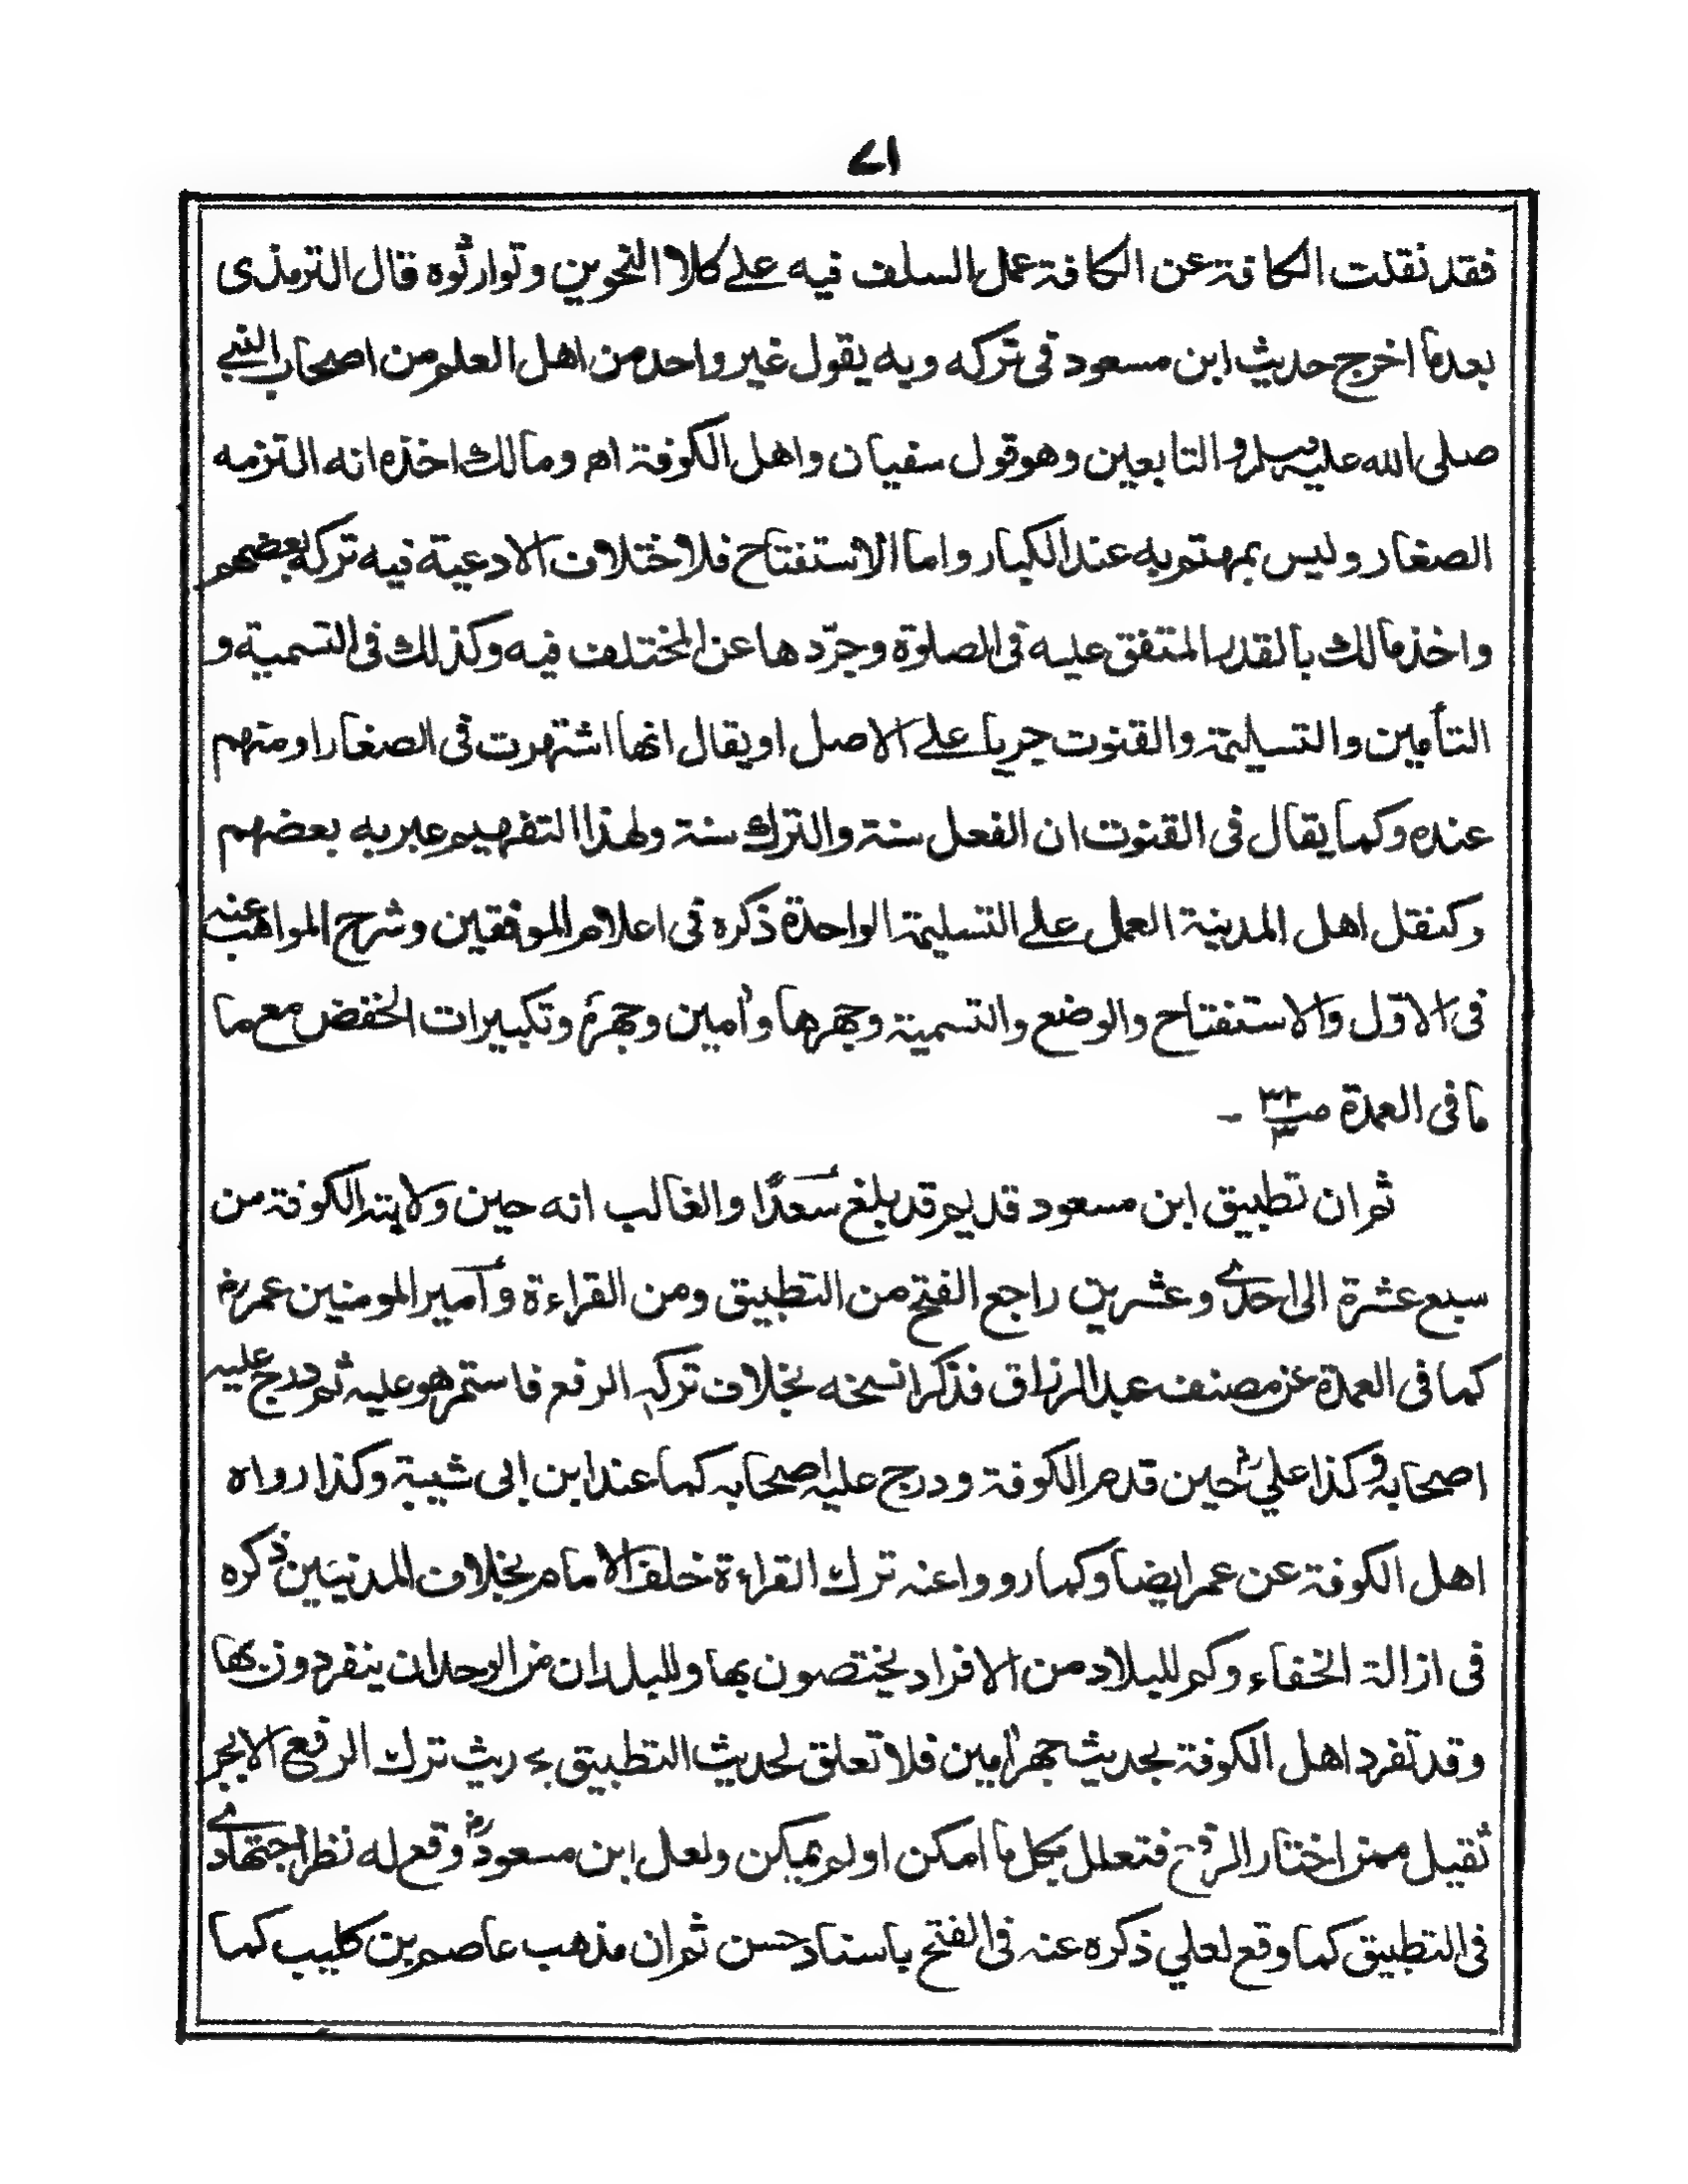 ٧١
فقد نقلت الكافة عن الكافة عمل السلف فيه علے كلا النحوين وتوارثوه قال الترمذى
بعد ما اخرج حديث ابن مسعود فى تركه وبه يقول غير واحد من اهل العلم من اصحاب النبے
صلى الله عليه وسلم والتابعين وهو قول سفيان واهل الكوفة اھ ومالك اخذه انه التزمه
الصغار وليس بمهتم به عند الكبار واما الاستفتاح فلاختلاف الادعية فيه تركه بعضهم
واخذ مالك بالقدر المتفق عليه فى الصلوة وجرّدها عن المختلف فيه وكذلك فى التسمية و
التأمين والتسليمة والقنوت جريا علے الاصل او يقال انها اشتهرت فى الصغار او منهم
عنده وكما يقال فى القنوت ان الفعل سنة والترك سنة ولهذا التفهيم عبر به بعضهم
وكنقل اهل المدينة العمل علے التسليمة الواحدة ذكره فى اعلام الموفقين وشرح المواهب عنه
فى الاول والاستفتاح والوضع والتسمية وجهرها وأمين وجهرهٔ وتكبيرات الخفض مع ما
ما فى العمدة صـ ٣ -
ثم ان تطبيق ابن مسعود قد لم قد بلغ سعدًا والغالب انه حين ولايته الكوفة من
سبع عشرة الى احدے وعشرين راجع الفتح من التطبيق ومن القراءة وأمير المومنين عمر رض
كما فى العمدة عن مصنف عبد الرزاق فذكرا نسخه بخلاف تركه الرفع فاستمر هو عليه ثم درج عليه
اصحابه وكذا علي رض حين قدم الكوفة ودرج عليه اصحابه كما عند ابن ابى شيبة وكذا رواه
اهل الكوفة عن عمر ايضا وكما رووا عنه ترك القراءة خلف الامام بخلاف المدنيين ذكره
فى ازالة الخفاء وكم للبلاد من الافراد يختصون بها وللبلدان من الوحدان ينفردون بها
وقد تفرد اهل الكوفة بحديث جهر أمين فلا تعلق لحديث التطبيق بحديث ترك الرفع الا بجر
ثقيل ممن اختار الرفع فتعلل بكل ما امكن او لم يمكن ولعل ابن مسعود رض وقع له نظر اجتهادے
فى التطبيق كما وقع لعلي ذكره عنه فى الفتح باسناد حسن ثم ان مذهب عاصم بن كليب كما